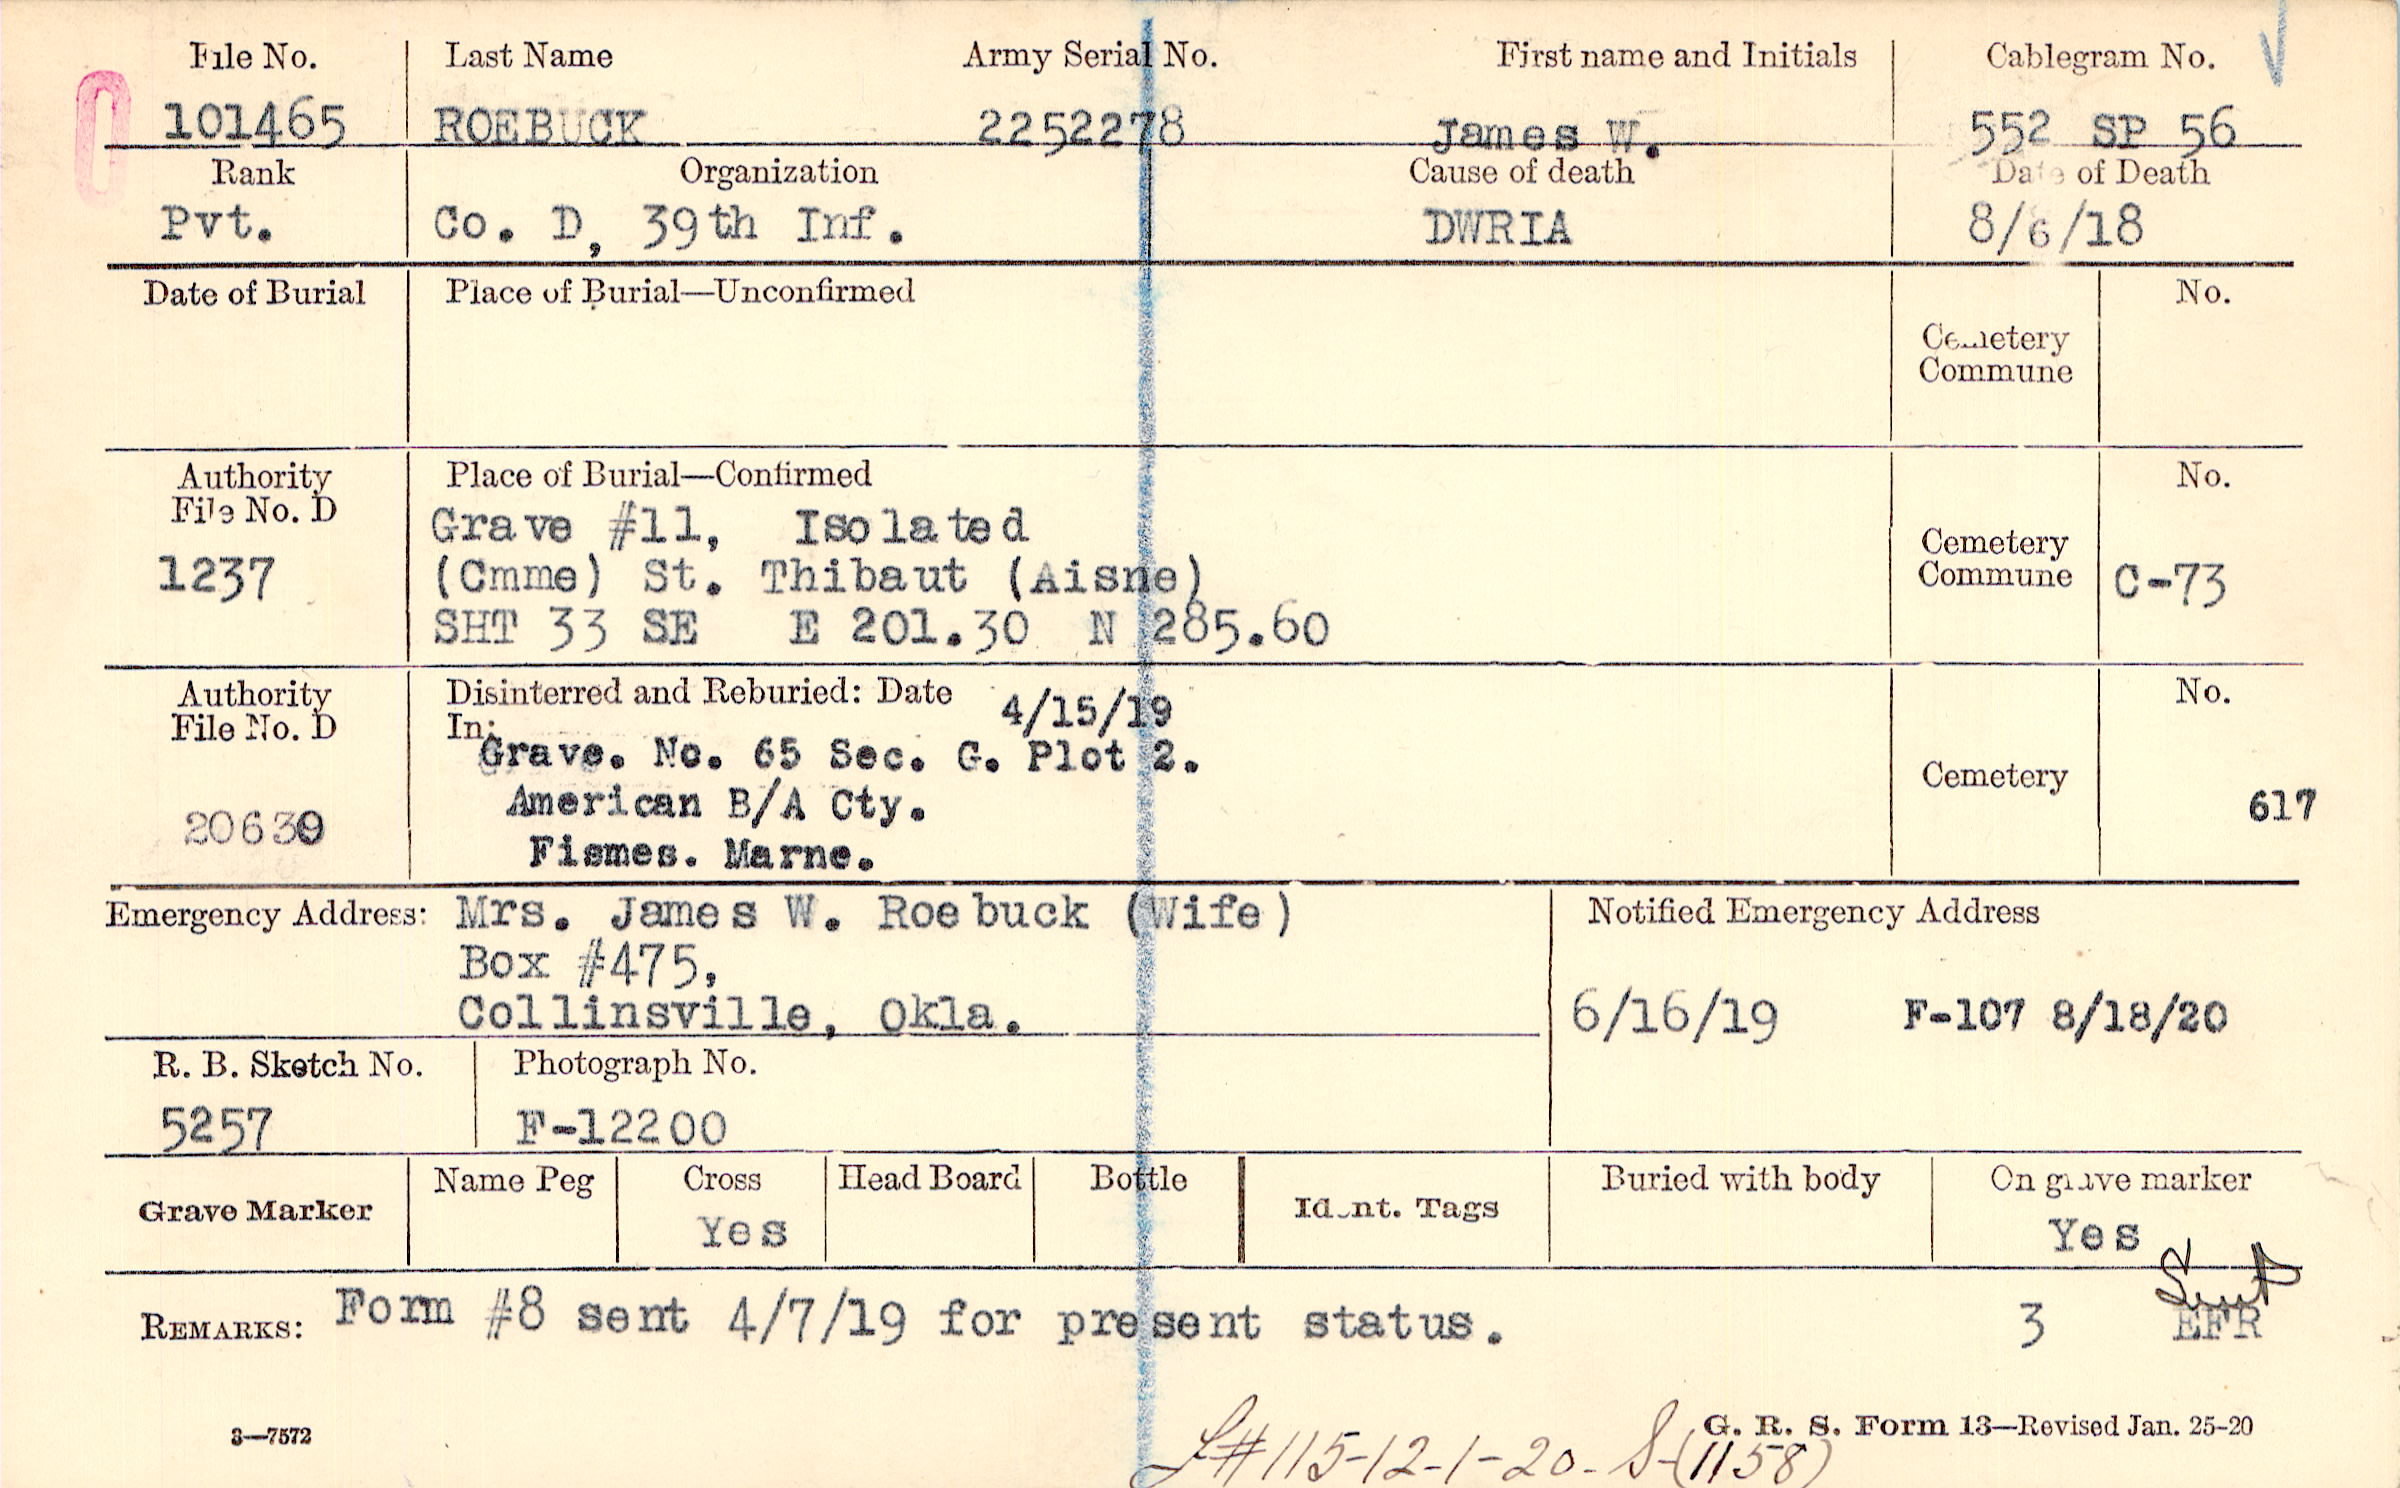 File No. Last Name Army Serial No. First name and Initials Cablegram No.
101465 ROEBUCK 2252278 James W. 552 SP 56
Rank Organization Cause of death Date of Death
Pvt. Co. D, 39th Inf. DWRIA 8/6/18
Date of Burial Place of Burial—Unconfirmed No.
Cemetery
Commune
Authority Place of Burial—Confirmed No.
File No. D
Grave #11, Isolated
Cemetery
1237 (Cmme) St. Thibaut (Aisne) Commune C-73
SHT 33 SE E 201.30 N 285.60
Authority Disinterred and Reburied: Date 4/15/19 No.
File No. D In:
Grave. No. 65 Sec. G. Plot 2.
Cemetery
American B/A Cty. 617
20639
Fismes. Marne.
Emergency Address: Mrs. James W. Roebuck (Wife) Notified Emergency Address
Box #475,
Collinsville, Okla. 6/16/19 F-107 8/18/20
R. B. Sketch No. Photograph No.
5257 F-12200
Grave Marker Name Peg Cross Head Board Bottle Ident. Tags Buried with body On grave marker
Yes Yes
Sent
REMARKS: Form #8 sent 4/7/19 for present status. 3 EFR
3—7572 G. R. S. Form 13—Revised Jan. 25-20
L#115-12-1-20- S-(1158)